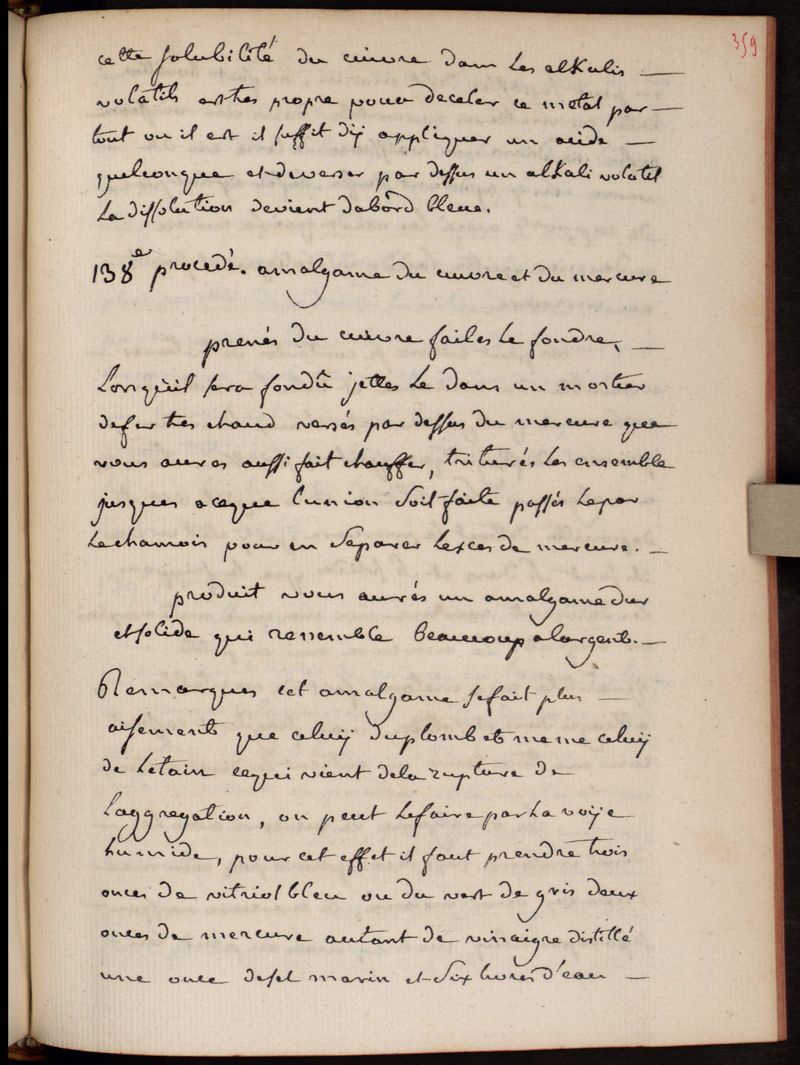 359
cette solubilité du cuivre dans les alkalis —
volatils est tres propre pour deceler ce metal par —
tout ou il est il suffit d'y appliquer un acide —
quelconque et de verser par dessus un alkali volatil
La dissolution devient dabord bleue.
138e procedé. amalgame du cuivre et du mercure
prenés du cuivre faites le fondre, —
Lorsqu'il sera fondû jettes le dans un mortier
de fer tres chaud versés par dessus du mercure que
vous aures aussi fait chauffer, triturés les ensemble
jusques aceque l'union soit faite passés le par
le chamois pour en separer lexces de mercure. —
produit vous aurés un amalgame dur
et solide qui ressemble beaucoup alargent. —
Remarques cet amalgame se fait plus —
aisement que celuy du plomb et meme celuy
de letain cequi vient dela rupture de
l'aggregation, on peut le faire par la voije
humide, pour cet effet il faut prendre trois
onces de vitriol bleu ou du vert de gris deux
onces de mercure autant de vinaigre distillé
une once de sel marin et six livres d'eau —